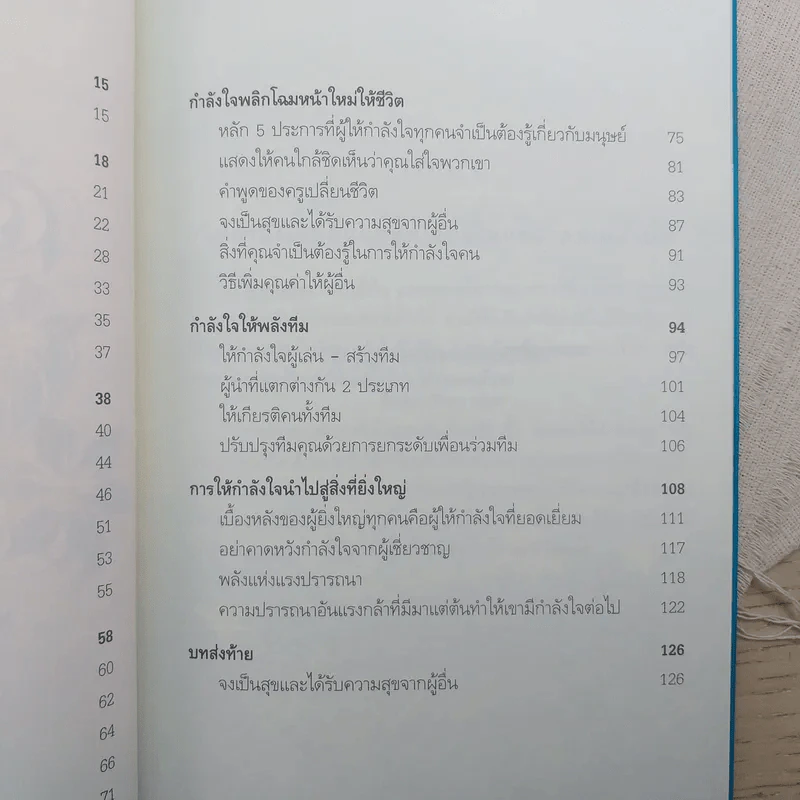 15
15
18
21
22
28
33
35
37
38
40
44
46
51
53
55
58
60
62
64
66
71
กำลังใจพลิกโฉมหน้าใหม่ให้ชีวิต
หลัก 5 ประการที่ผู้ให้กำลังใจทุกคนจำเป็นต้องรู้เกี่ยวกับมนุษย์ 75
แสดงให้คนใกล้ชิดเห็นว่าคุณใส่ใจพวกเขา 81
คำพูดของครูเปลี่ยนชีวิต 83
จงเป็นสุขและได้รับความสุขจากผู้อื่น 87
สิ่งที่คุณจำเป็นต้องรู้ในการให้กำลังใจคน 91
วิธีเพิ่มคุณค่าให้ผู้อื่น 93
กำลังใจให้พลังทีม 94
ให้กำลังใจผู้เล่น - สร้างทีม 97
ผู้นำที่แตกต่างกัน 2 ประเภท 101
ให้เกียรติคนทั้งทีม 104
ปรับปรุงทีมคุณด้วยการยกระดับเพื่อนร่วมทีม 106
การให้กำลังใจนำไปสู่สิ่งที่ยิ่งใหญ่ 108
เบื้องหลังของผู้ยิ่งใหญ่ทุกคนคือผู้ให้กำลังใจที่ยอดเยี่ยม 111
อย่าคาดหวังกำลังใจจากผู้เชี่ยวชาญ 117
พลังแห่งแรงปรารถนา 118
ความปรารถนาอันแรงกล้าที่มีมาแต่ต้นทำให้เขามีกำลังใจต่อไป 122
บทส่งท้าย 126
จงเป็นสุขและได้รับความสุขจากผู้อื่น 126